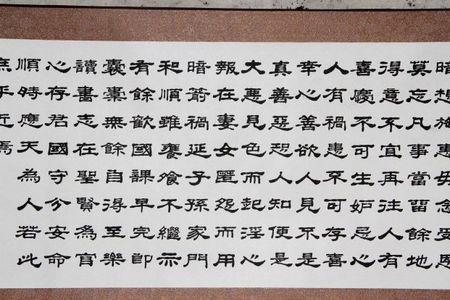 暗想施惠毋念受恩
莫忘凡事當留餘地
得意不宜再往人有
喜慶不可生妒忌心
人有禍患不可存喜
幸心善欲人見不是
真善惡恐人知便是
大惡見色而起淫心
報在妻女匿怨而用
暗箭禍延子孫家門
和順雖饔飧不繼亦
有餘歡國課早完即
囊橐無餘自得至樂
讀書志在聖賢為官
心存君國守分安命
順時應天為人若此
庶乎近焉